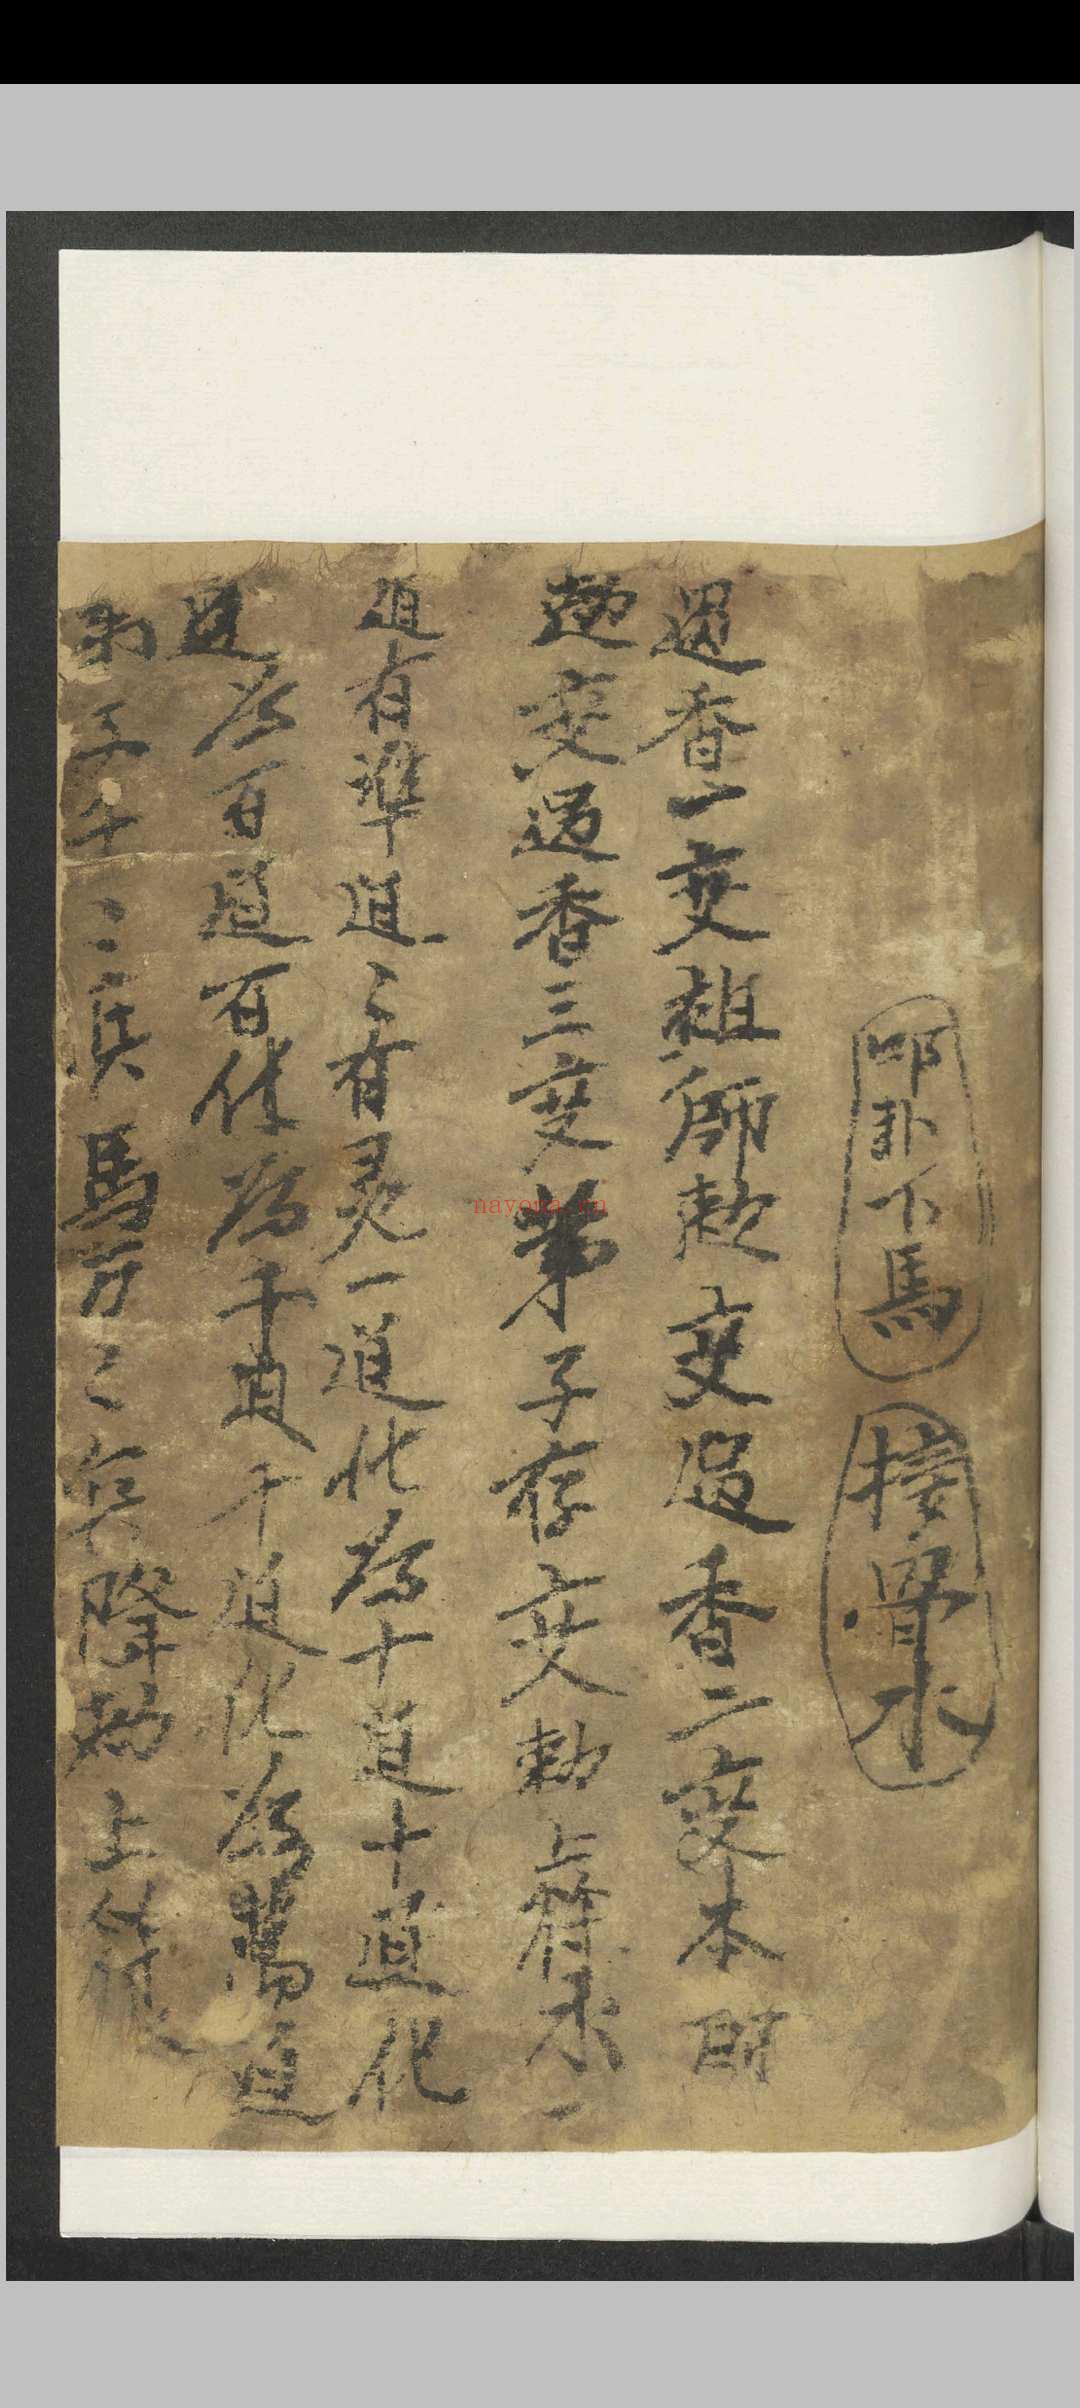 叩卦下馬 接骨水
過香一变祖師敕变過香二变本師
敕变過香三变弟子存变敕上符水一
道有準道〻有灵一道化為十道十道化
道為百道百化為千道千道化為萬道
弟子千〻兵馬万〻兵降為上符
nayona.cn